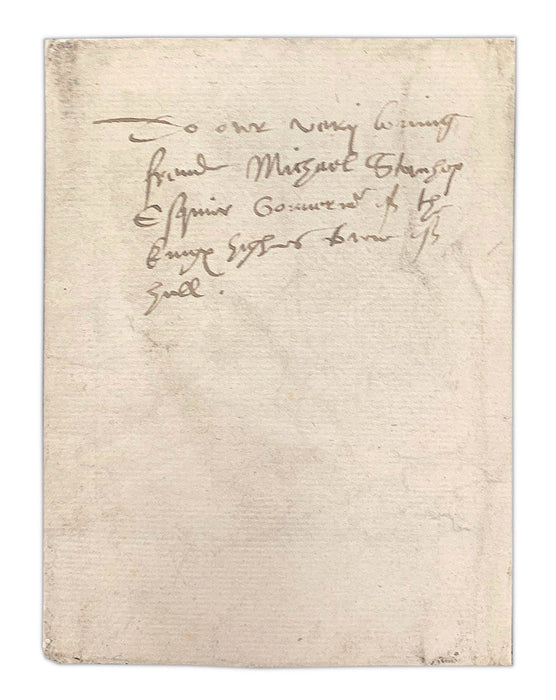 To our very loving
frend Michael Stanhop
Esquier Governor of the
kinges highnes towne of
hull .